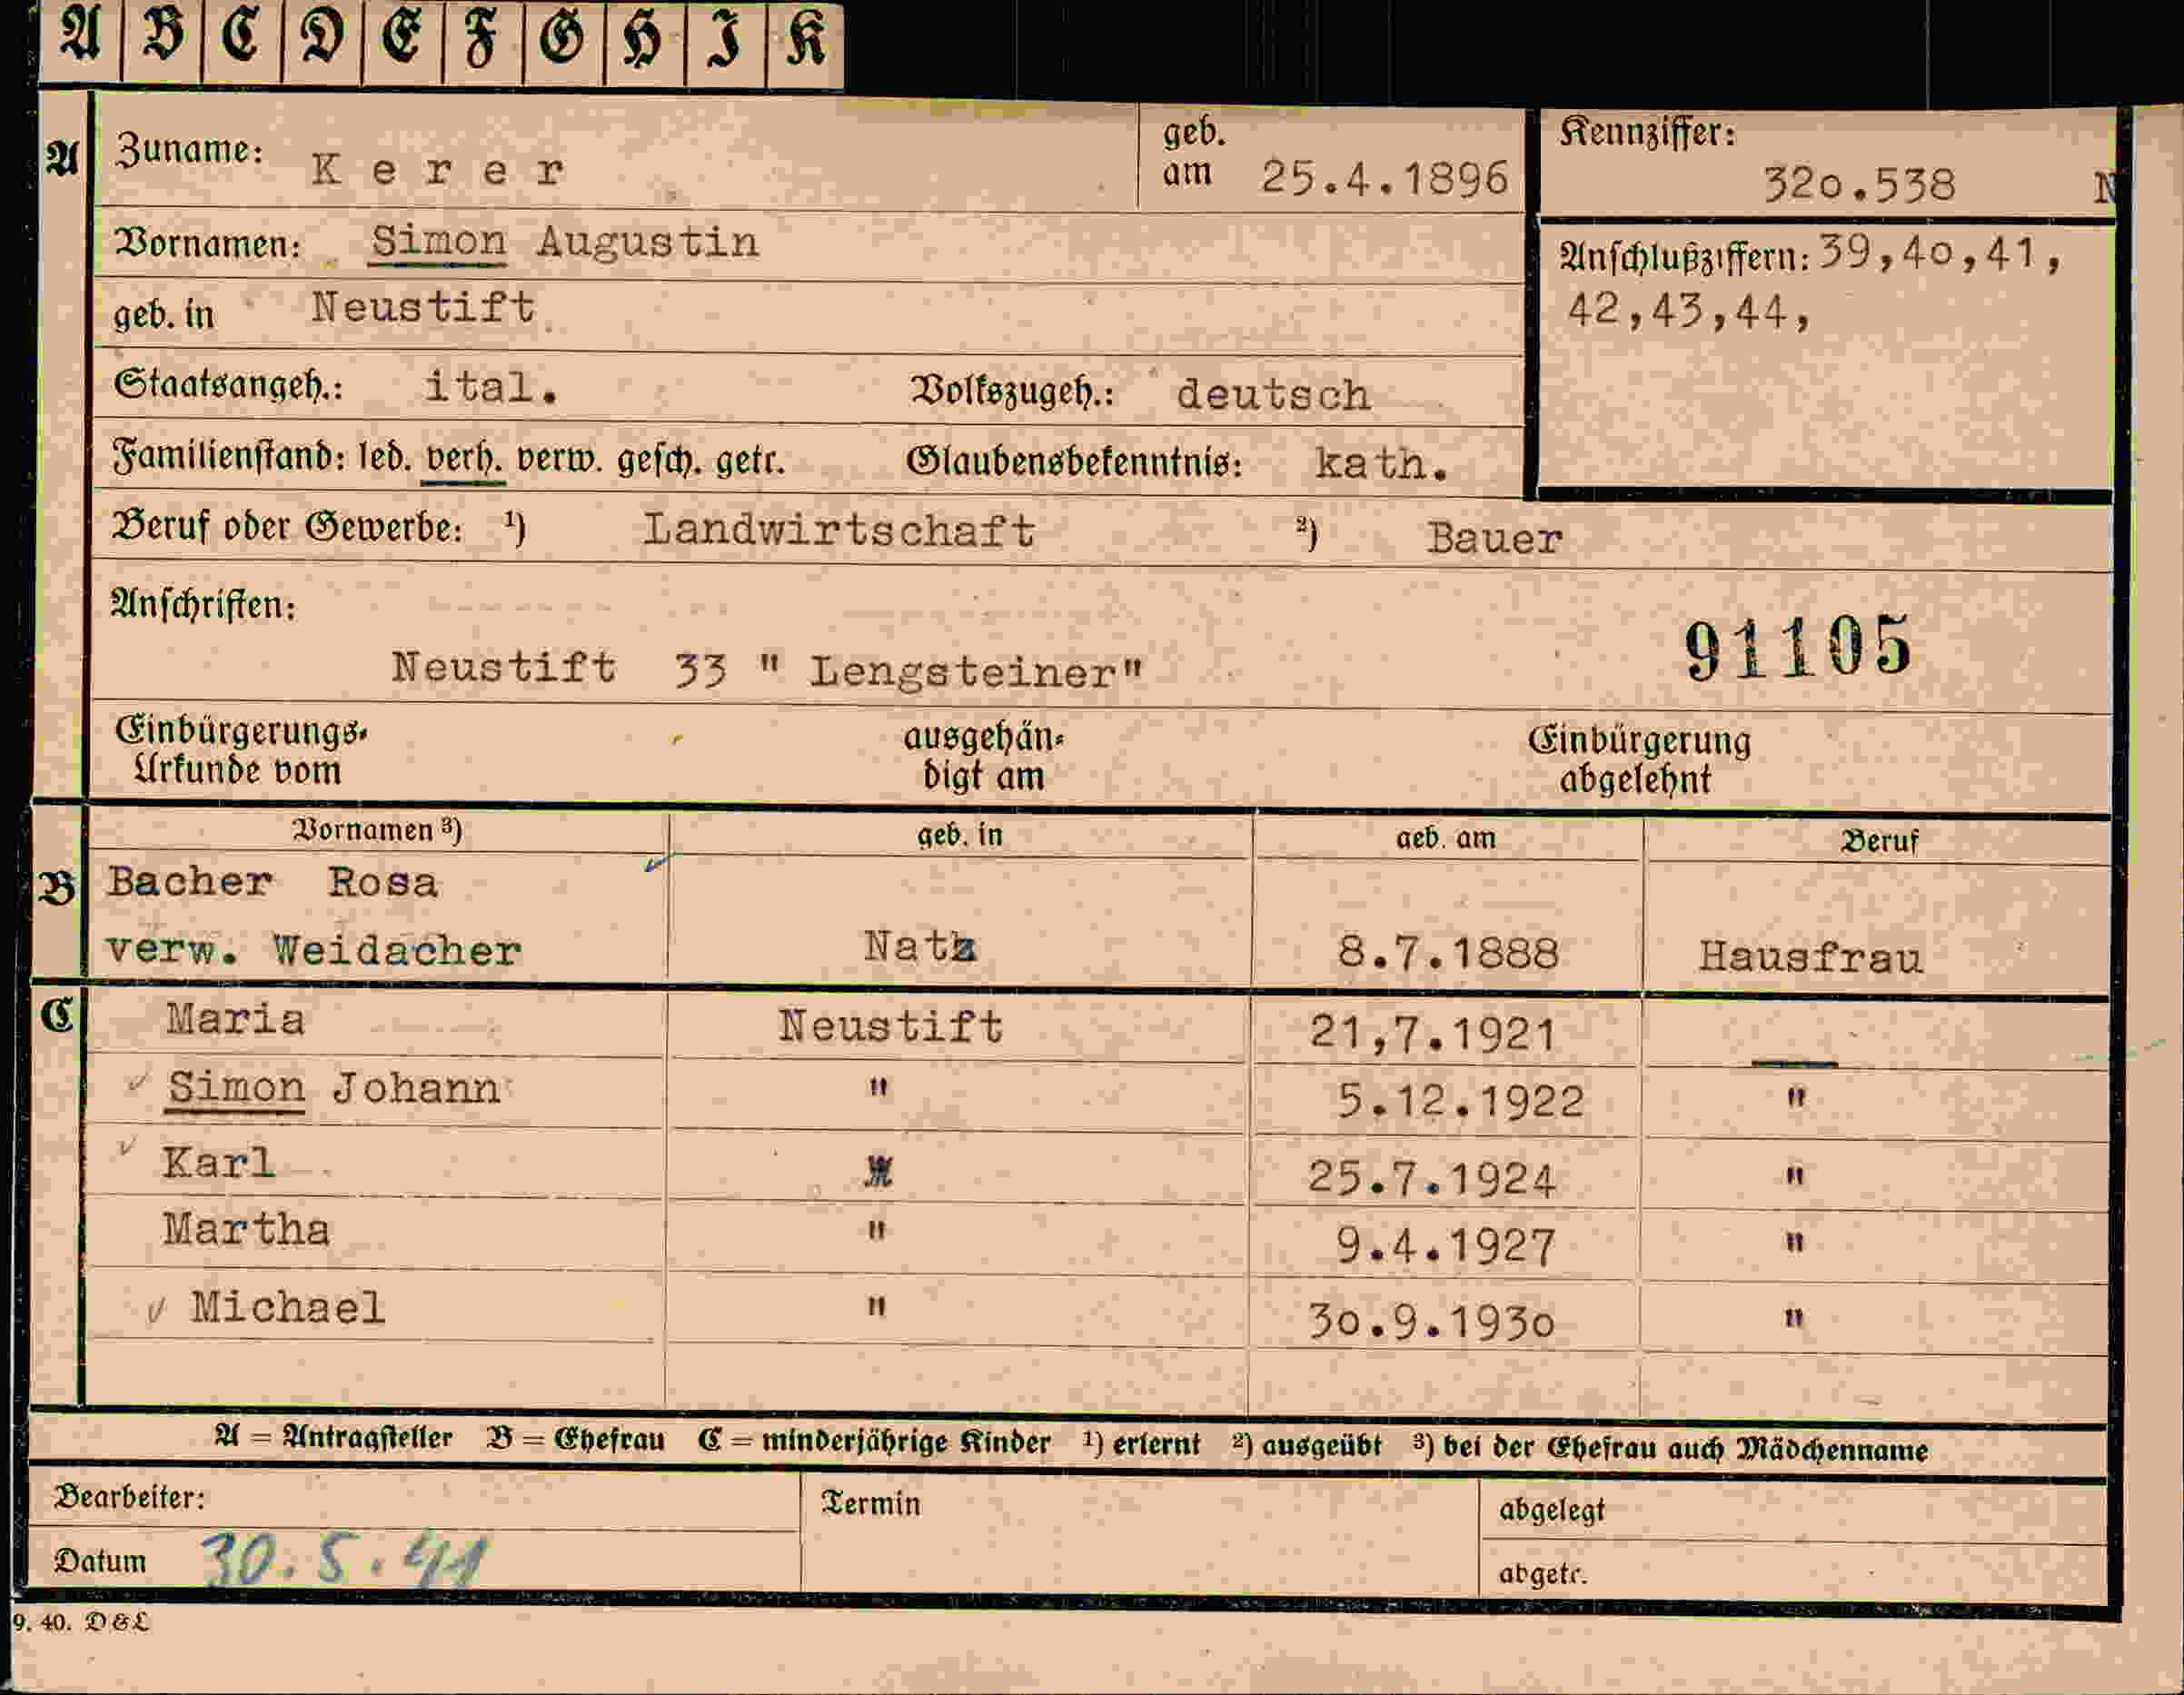 A B C D E F G H I K
A Zuname: Kerer geb. am 25.4.1896 Kennziffer: 320.538 N
Vornamen: Simon Augustin Anschlußziffern: 39,40,41,
geb. in Neustift 42,43,44,
Staatsangeh.: ital. Volkszugeh.: deutsch
Familienstand: led. verh. verw. gesch. getr. Glaubensbekenntnis: kath.
Beruf oder Gewerbe: ¹) Landwirtschaft ²) Bauer
Anschriften:
91105
Neustift 33 " Lengsteiner"
Einbürgerungs- ausgehän- Einbürgerung
Urkunde vom digt am abgelehnt
Vornamen ³) geb. in geb. am Beruf
B Bacher Rosa
verw. Weidacher Natz 8.7.1888 Hausfrau
C Maria Neustift 21,7.1921 —
Simon Johann " 5.12.1922 "
Karl 25.7.1924 "
Martha " 9.4.1927 "
Michael " 30.9.1930 "
A = Antragsteller B = Ehefrau C = minderjährige Kinder ¹) erlernt ²) ausgeübt ³) bei der Ehefrau auch Mädchenname
Bearbeiter: Termin abgelegt
Datum 30.5.41 abgetr.
9. 40. D & L